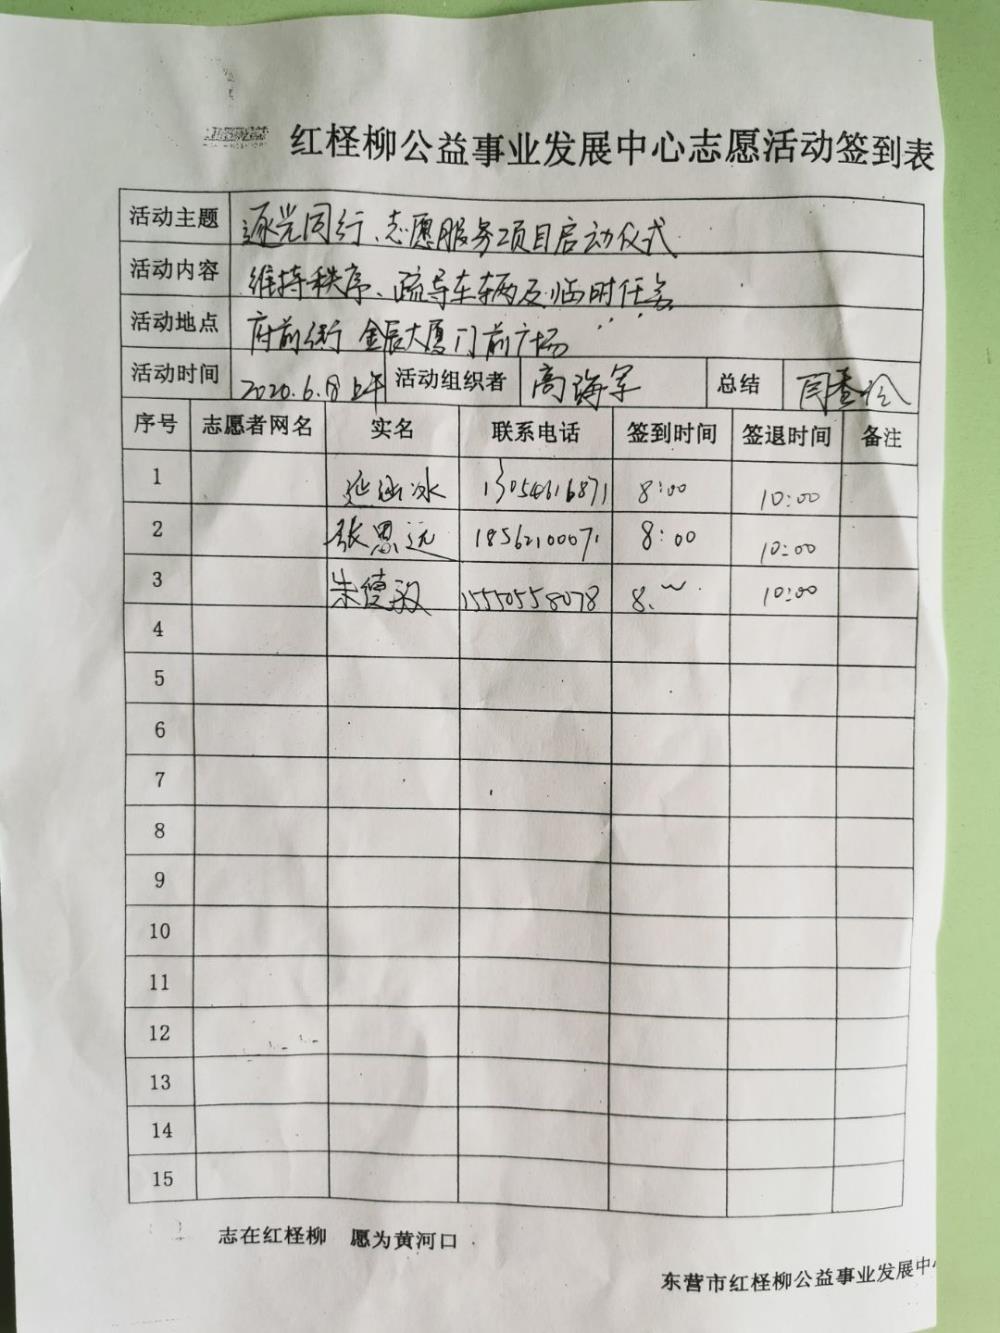 红柽柳公益事业发展中心志愿活动签到表
活动主题 逐光同行、志愿服务项目启动仪式
活动内容 维持秩序、疏导车辆及临时任务
活动地点 府前街 金辰大厦门前广场
活动时间 2020.6.8上午 活动组织者 高海军 总结
序号 志愿者网名 实名 联系电话 签到时间 签退时间 备注
1 冰 13054616871 8:00 10:00
2 张思远 18562100071 8:00 10:00
3 朱德 15550558078 8. 10:00
4
5
6
7
8
9
10
11
12
13
14
15
志在红柽柳 愿为黄河口
东营市红柽柳公益事业发展中